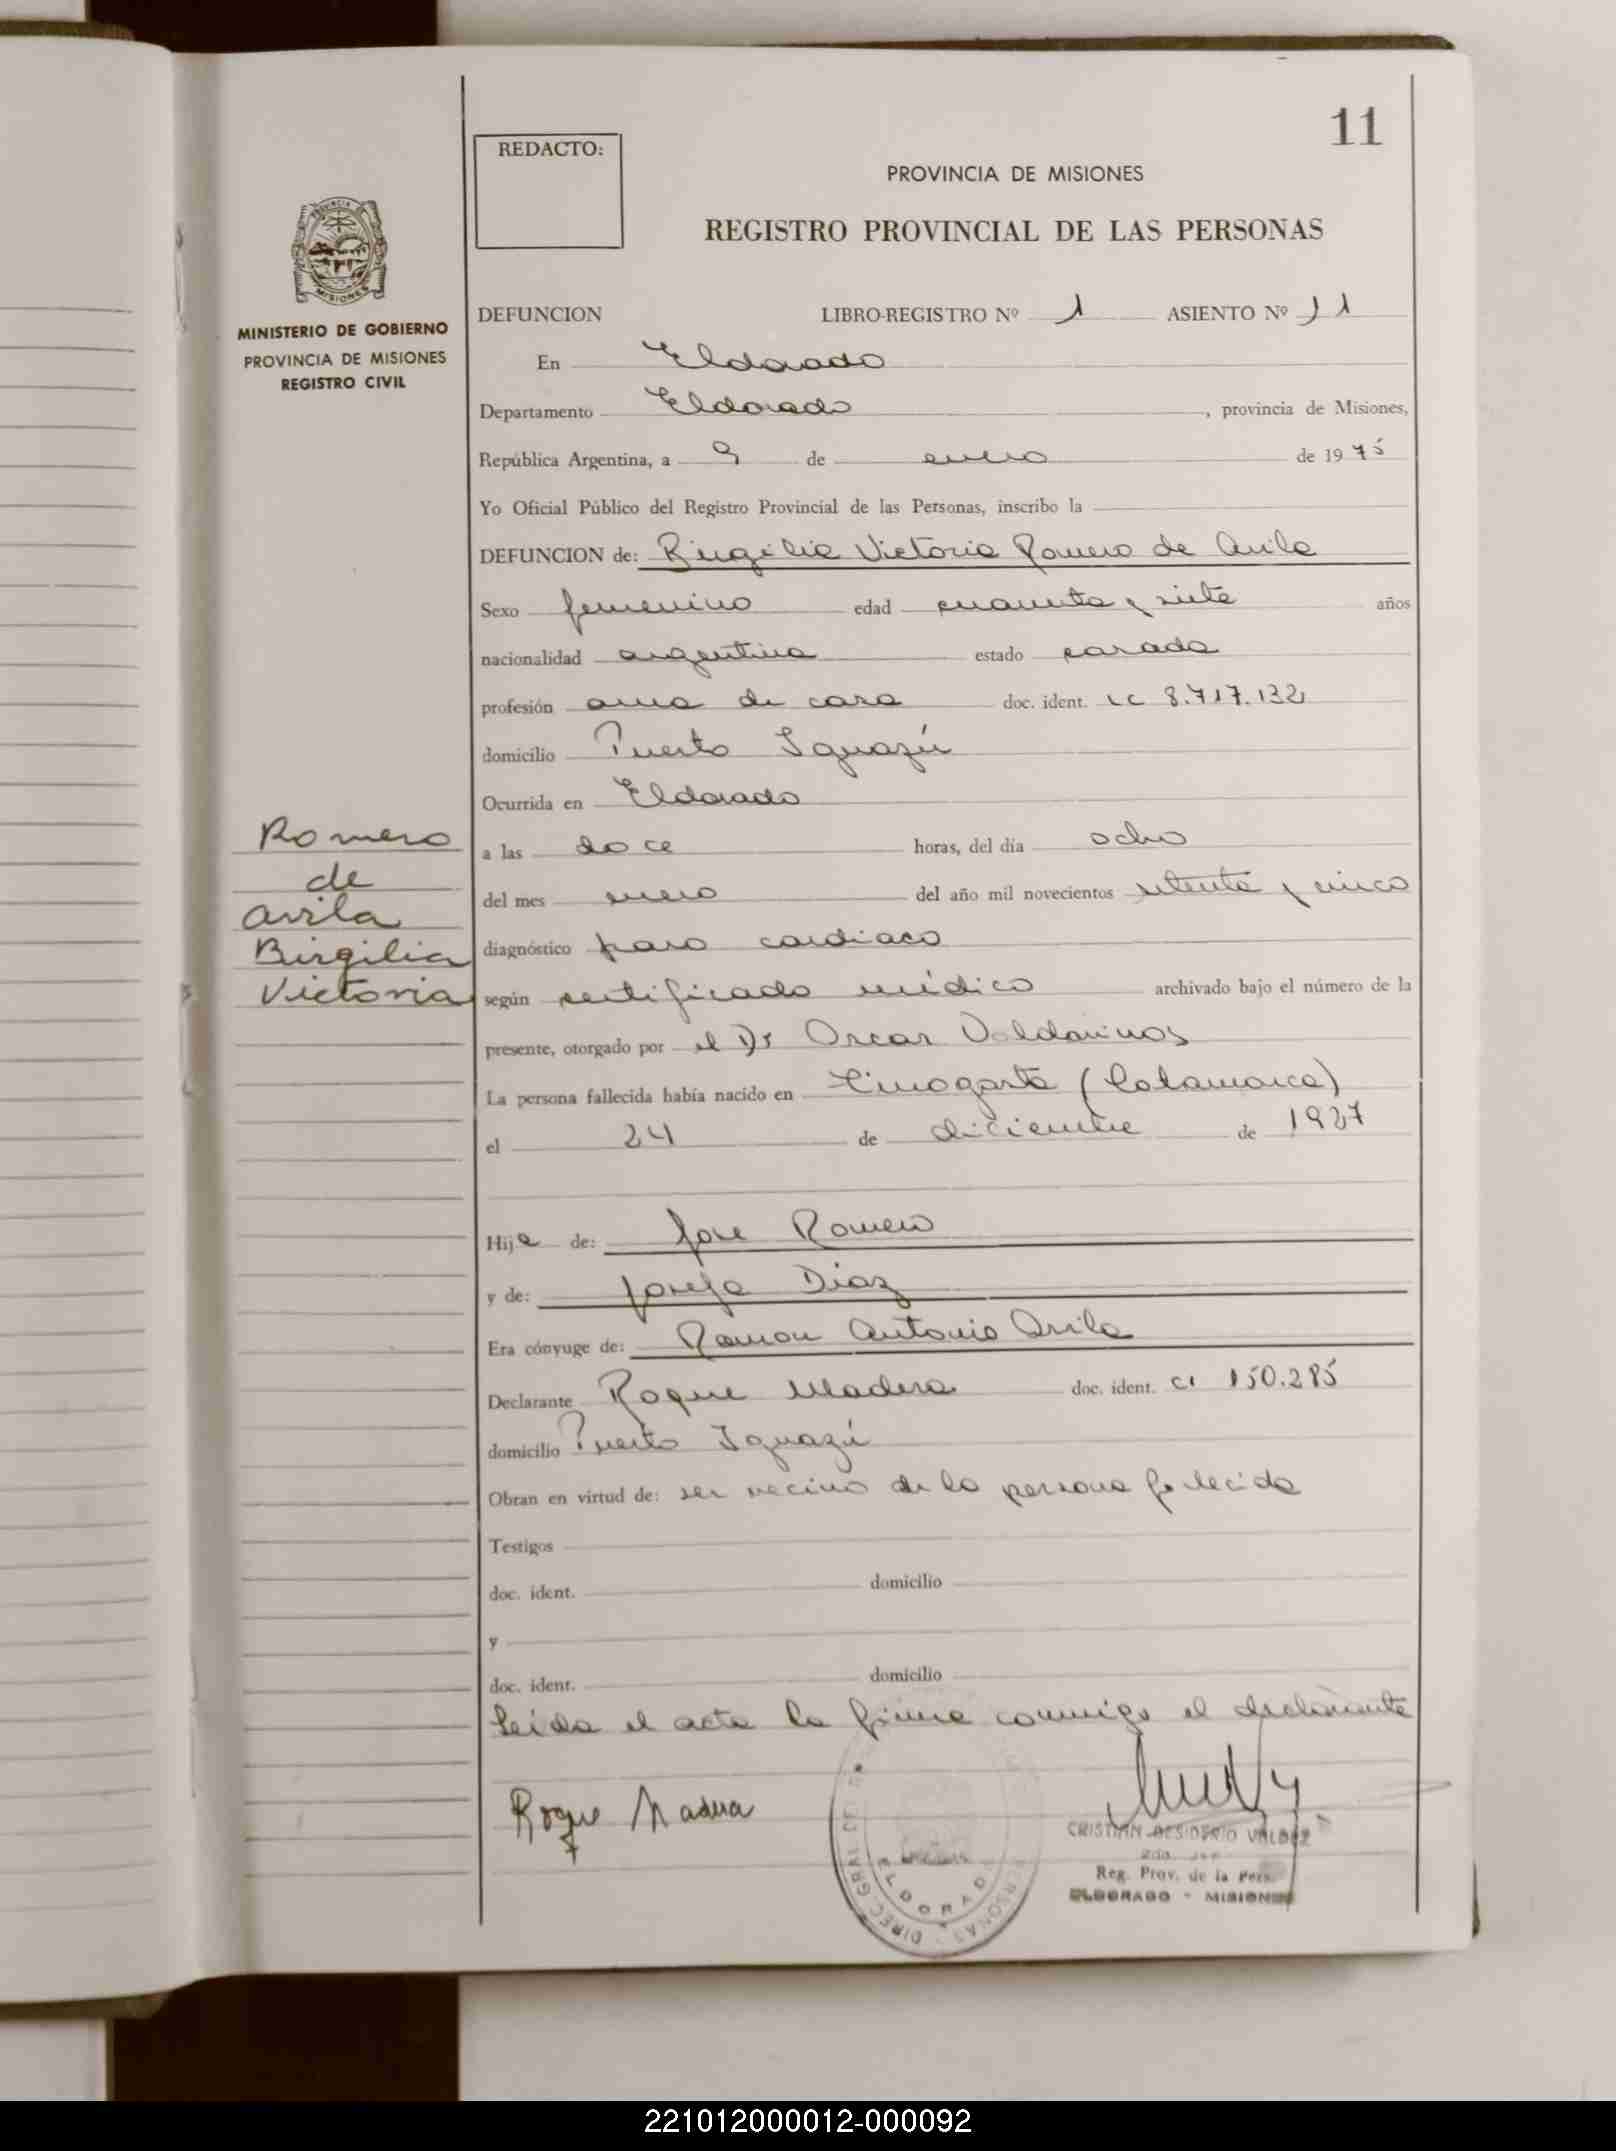 11
REDACTO:
PROVINCIA DE MISIONES
REGISTRO PROVINCIAL DE LAS PERSONAS
PROVINCIA DE
MISIONES
MINISTERIO DE GOBIERNO
PROVINCIA DE MISIONES
REGISTRO CIVIL
DEFUNCION LIBRO-REGISTRO Nº 1 ASIENTO Nº 11
En Eldorado
Departamento Eldorado, provincia de Misiones,
República Argentina, a 9 de enero de 1975
Yo Oficial Público del Registro Provincial de las Personas, inscribo la
DEFUNCION de: Birgilia Victoria Romero de Avila
Sexo femenino edad cuarenta y siete años
nacionalidad argentina estado casada
profesión ama de casa doc. ident. LC 8.717.132
domicilio Puerto Iguazú
Ocurrida en Eldorado
a las doce horas, del día ocho
del mes enero del año mil novecientos setenta y cinco
diagnóstico paro cardiaco
según certificado médico archivado bajo el número de la
presente, otorgado por el Dr Oscar Valdovinos
La persona fallecida había nacido en Tinogasta (Catamarca)
el 24 de diciembre de 1927
Romero
de
Avila
Birgilia
Victoria
Hija de: Jose Romero
y de: Josefa Diaz
Era cónyuge de: Ramon Antonio Avila
Declarante Roque Madera doc. ident. CI 150.285
domicilio Puerto Iguazú
Obran en virtud de: ser vecino de la persona fallecida
Testigos
doc. ident. domicilio
y
doc. ident. domicilio
Leida el acta la firma conmigo el declarante
Roque Madera
ELDORADO
CRISTIAN DESIDERIO VALDEZ
Reg. Prov. de la Pers.
ELDORADO - MISIONES
221012000012-000092